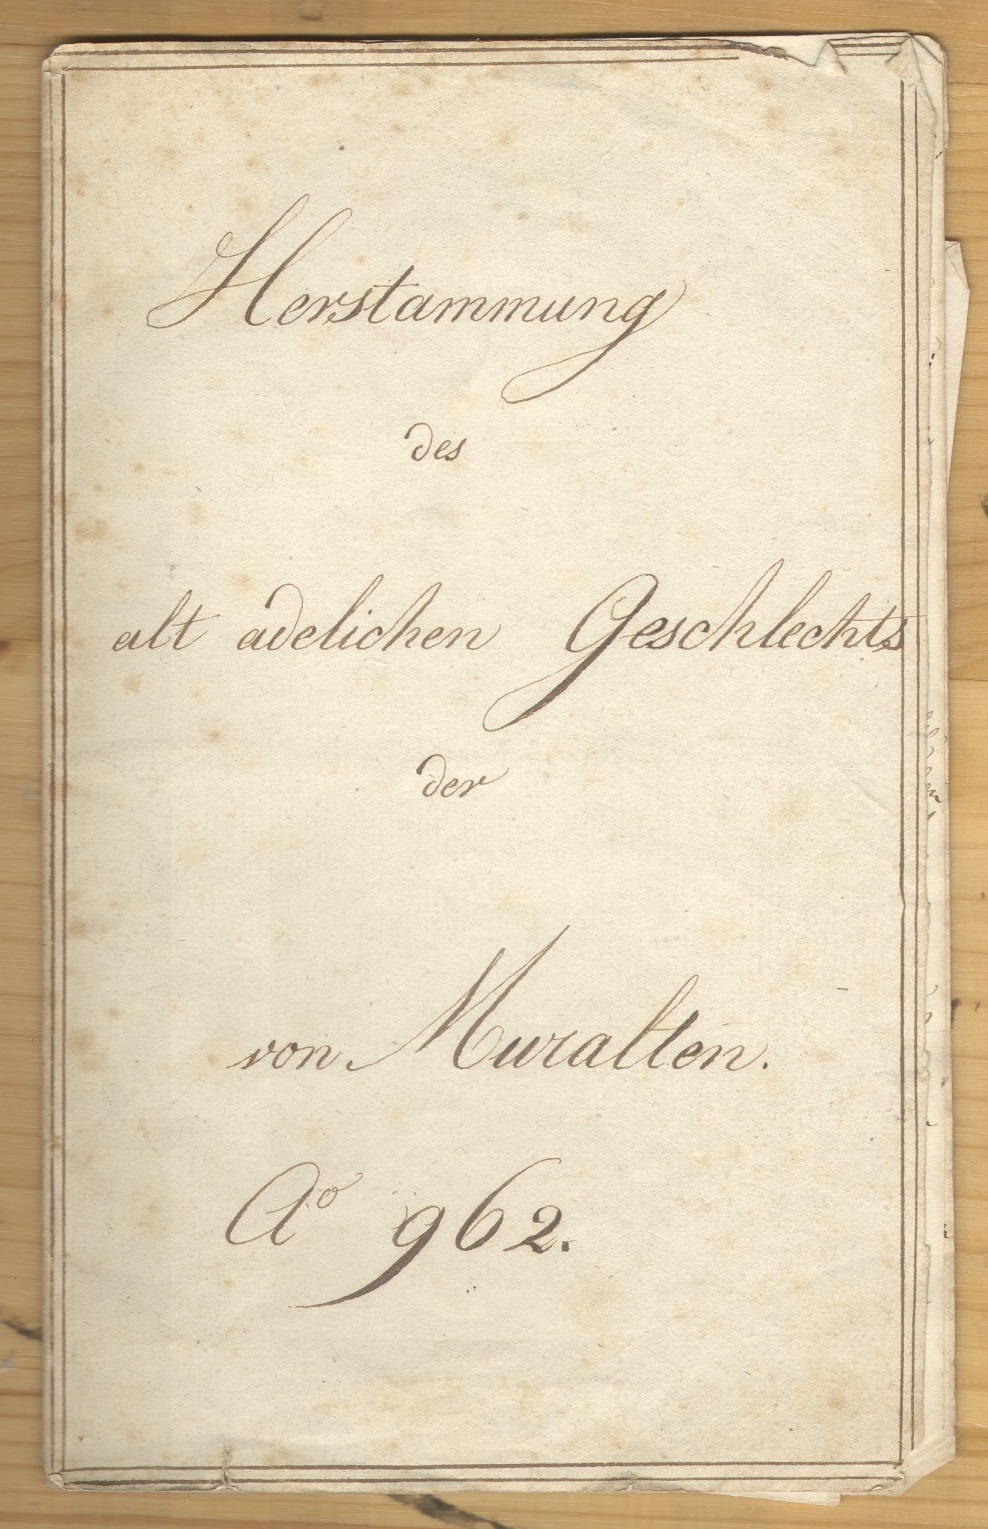 Herstammung
des
alt adelichen Geschlechts
der
von Muralten.
Aº 962.